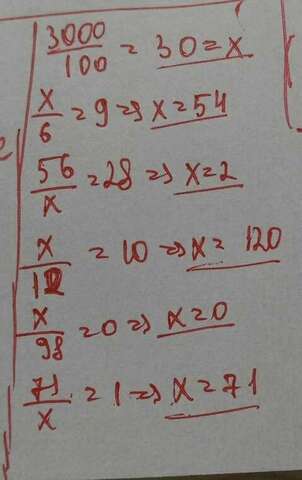 3000/100 = 30 = x
x/6 = 9 => x = 54
56/x = 28 => x = 2
x/12 = 10 => x = 120
x/98 = 0 => x = 0
71/x = 1 => x = 71